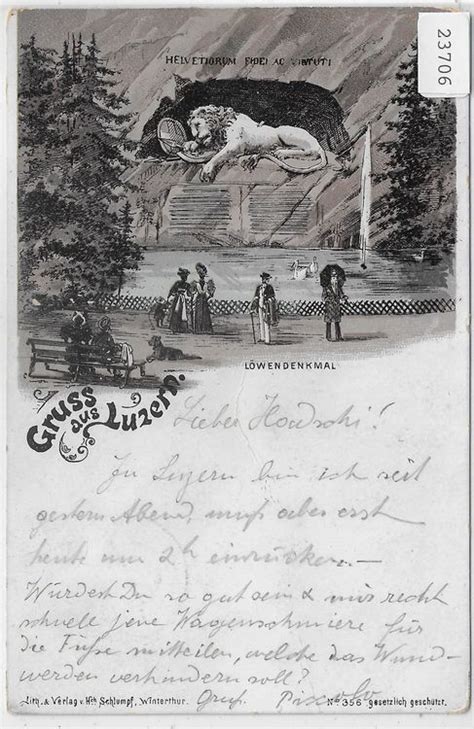 23706
HELVETIORUM FIDEI AC VIRTUTI
LÖWENDENKMAL
Gruss
aus
Luzern.
Lieber !
In Luzern bin ich seit
gestern Abend, muß aber erst
heute um 2h einrücken. —
Würdest Du so gut sein & mir recht
schnell jene Wagenschmiere für
die Füße mitteilen, welche das Wund-
werden verhindern soll?
Gruß.
Lith. & Verlag v. Hch Schlumpf, Winterthur.
No 356 gesetzlich geschützt.